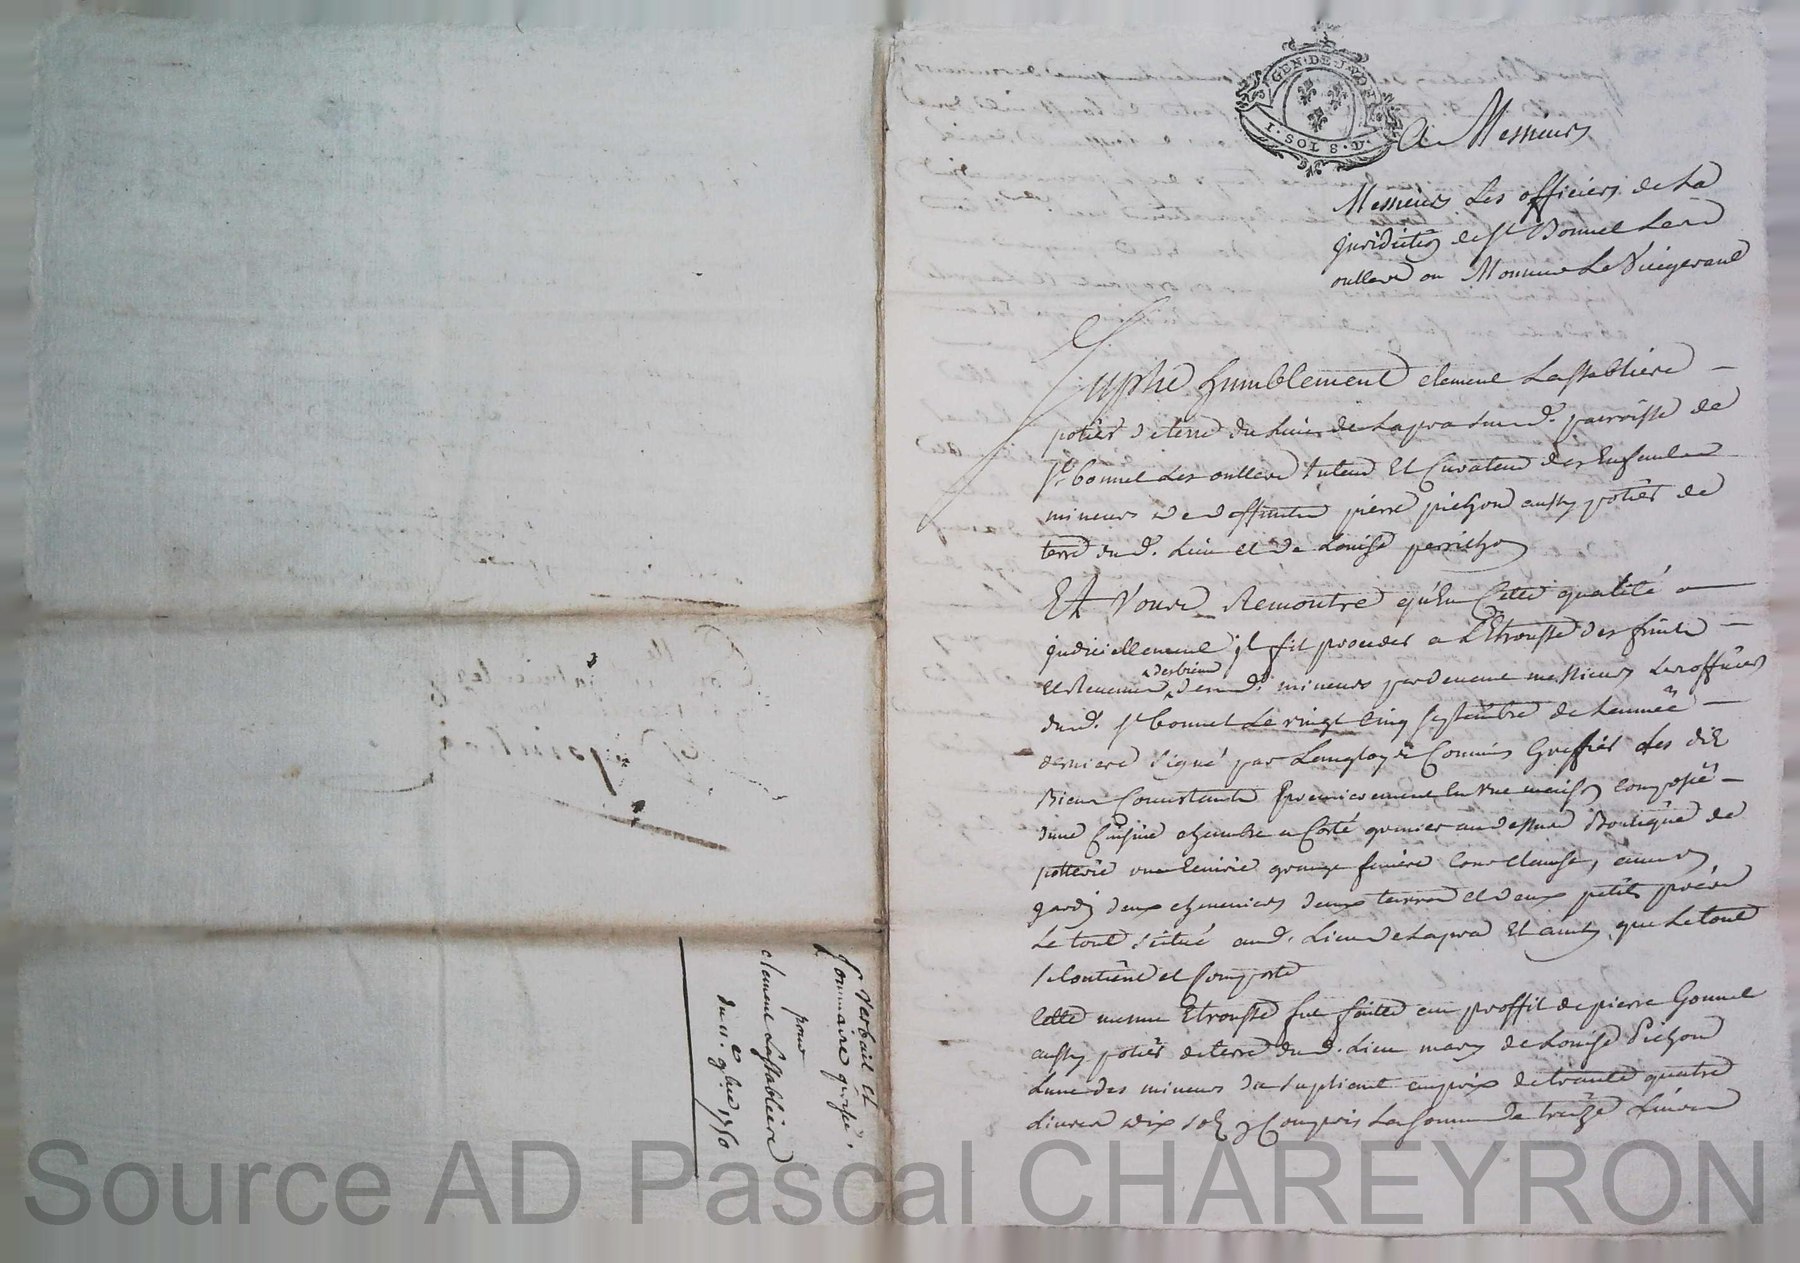 GEN · DE ·
I · SOLS 8 · D
A Messieurs
Messieurs Les officiers de La
juridiction de St Bonnet Les
oullers ou Monsieur Le Vicegerant
Supplie humblement clement Lastabliere
potier de terre du Lieu de Lapra sur d. parroisse de
St bonnet Les oullers tuteur Et Curateur des Enfants
mineurs de deffunt pierre pichon aussy potier de
terre du d. Lieu et de Louise perrichon
Et Vous Remontre qu'En Cette qualité
judiciellement il fit proceder a L'Etrousse des fruits
Et Revenus des biens desd. mineurs pardevant messieurs Les officiers
dud. St bonnet Le vingt cinq septembre de Lannée
derniere signé par Commis Greffier Les dits
Biens Consistants premierement En une maison composée
dune Cuisine chambre a Costé grenier au dessus Boutique de
potterie une Ecurie grange feniere Cour clause,
jardin deux cheneviers deux terres et deux petits prés
Le tout situé aud. Lieu de Lapra Et ainsy que Le tout
se Contient et Comporte
Cette mesme Etrousse fut faite au proffit de pierre Gonnet
aussy potier de terre dud. Lieu mary de Louise Pichon
Lune des mineurs du supliant au prix de trante quatre
Livres dix sols y Compris La somme de treize Livres
Verbail et
sommaire
pour
clement Lastabliere
du 11e 9bre 1750
Source AD Pascal CHAREYRON